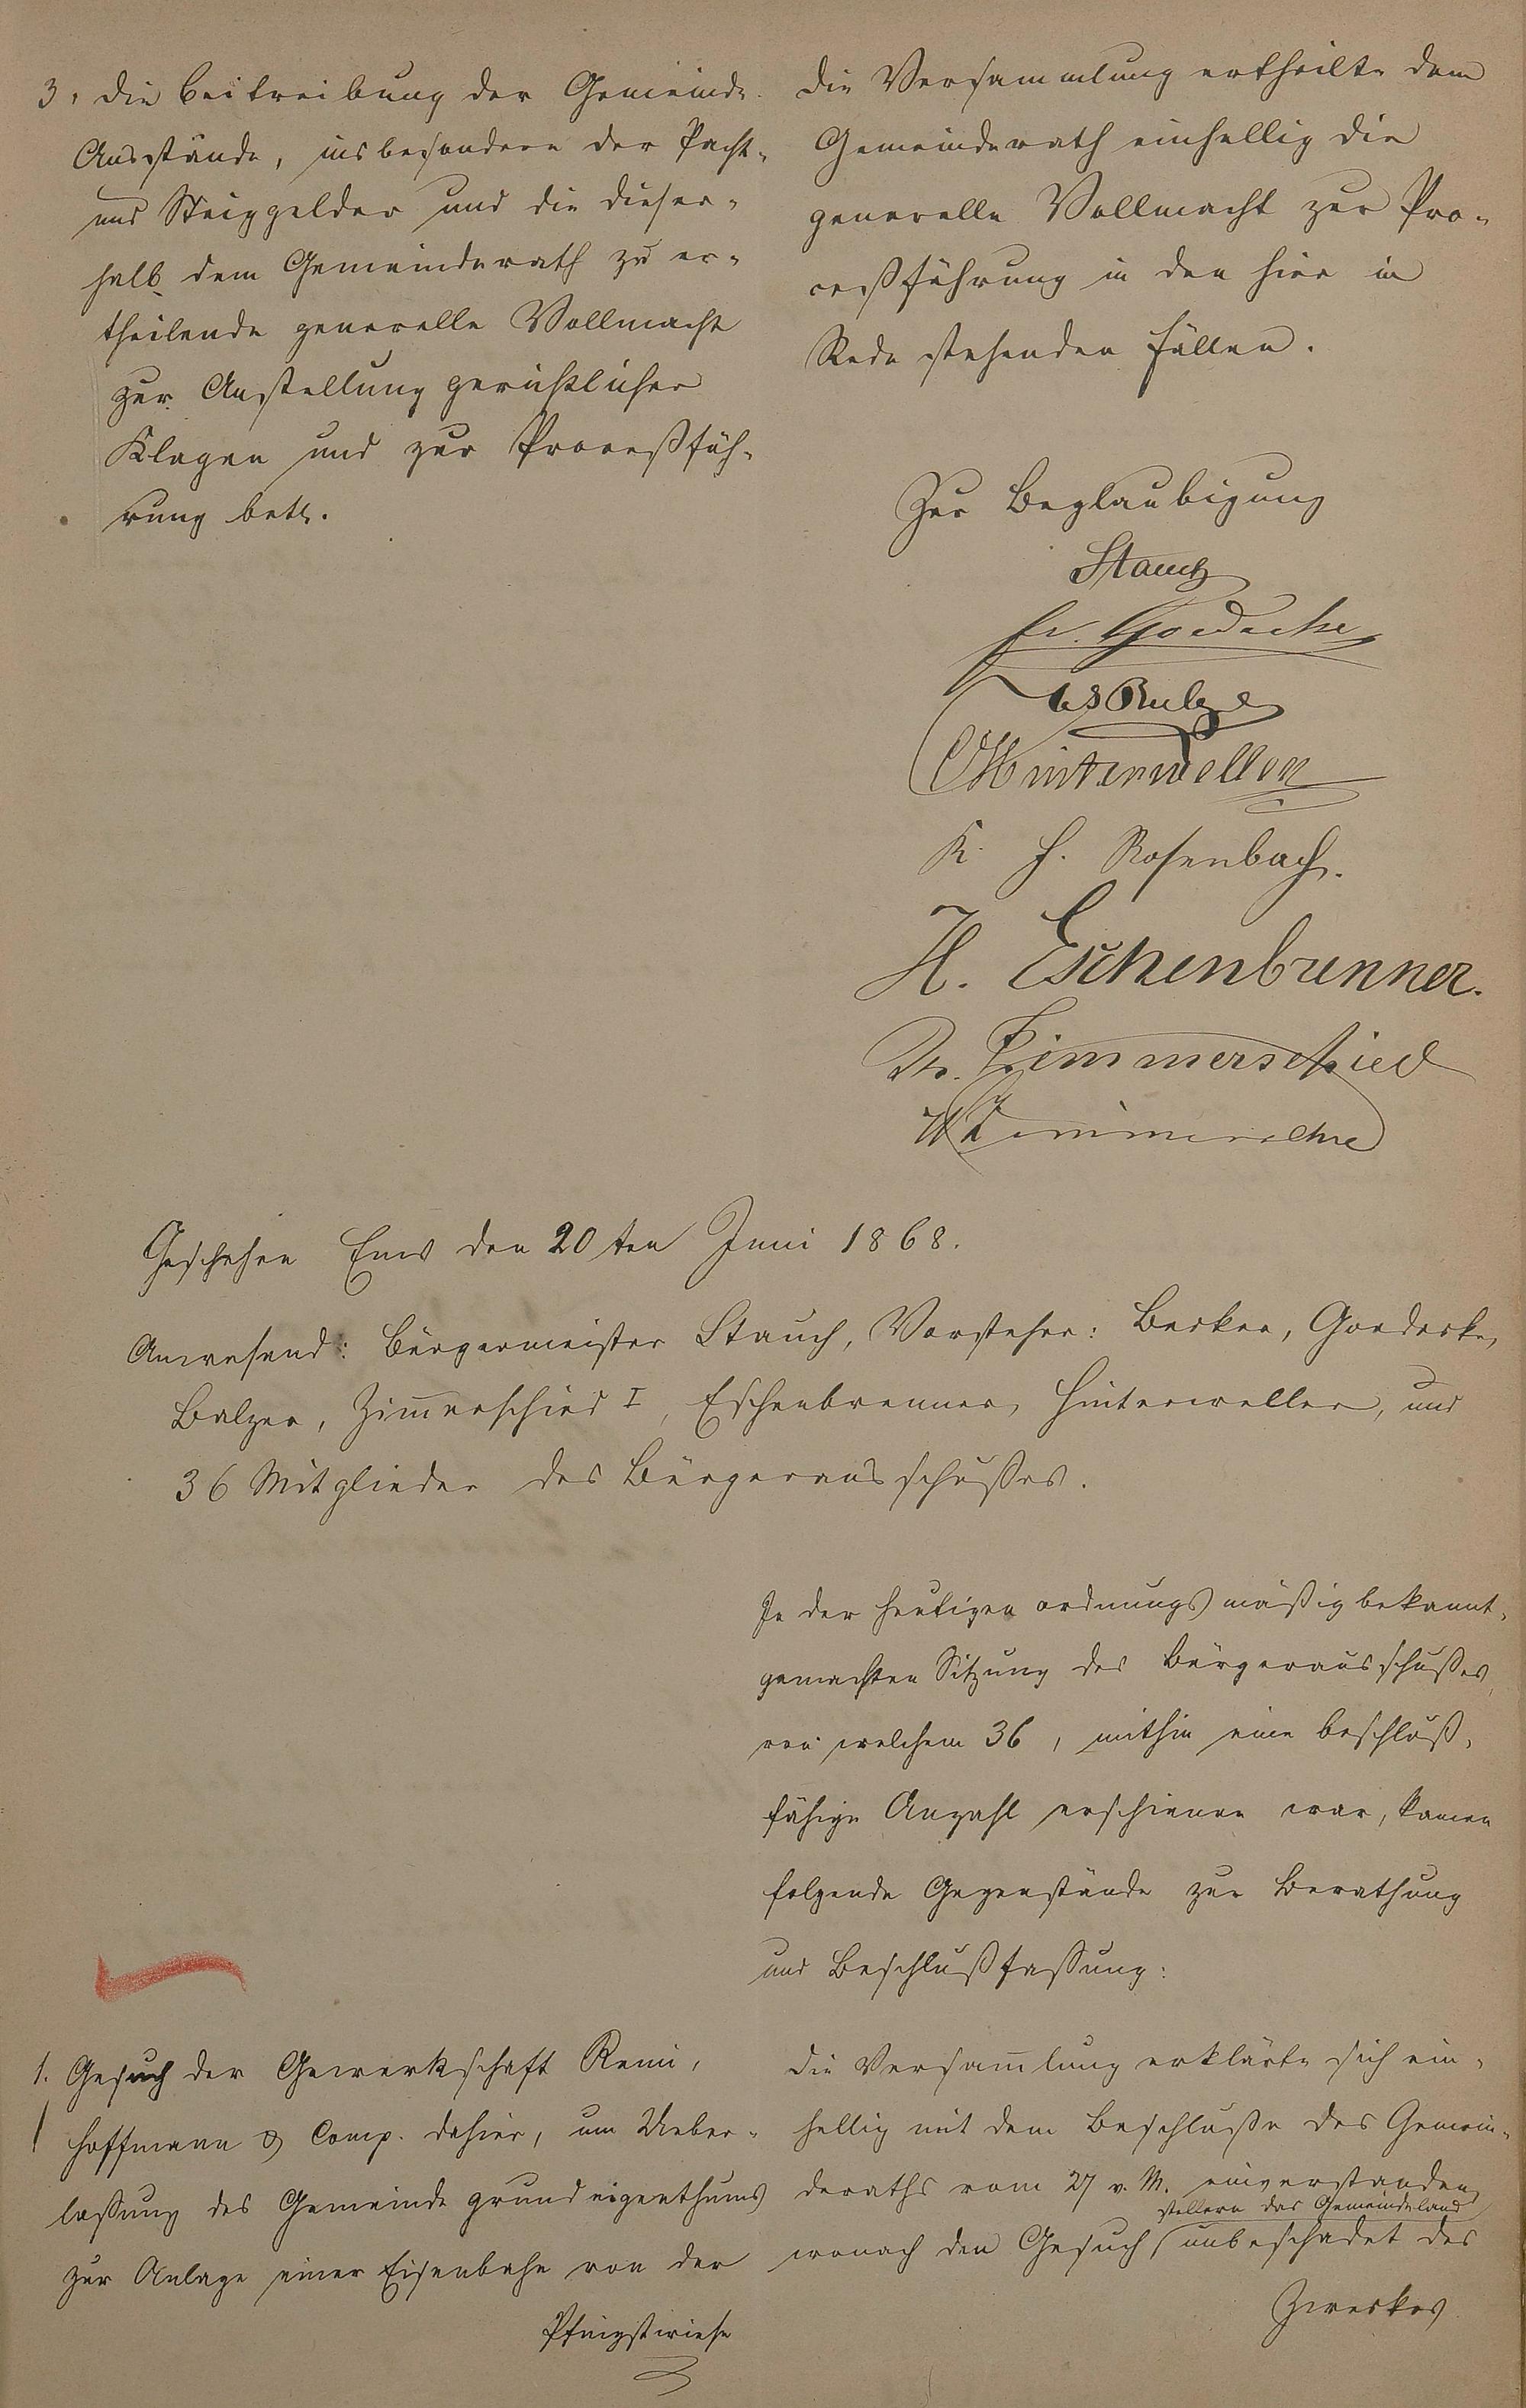 3, die Beitreibung der Gemeinde-
Ausstände, insbesondere der Pacht-
und Steiggelder und die dieser-
halb dem Gemeinderath zu er-
theilende generelle Vollmacht
zur Anstellung gerichtlicher
Klagen und zur Proceßfüh-
rung betr.
die Versammlung ertheilte dem
Gemeinderath einhellig die
generelle Vollmacht zur Pro-
ceßführung in den hier in
Rede stehenden Fällen.
Zur Beglaubigung
Stauch
Fr. Goedecke
Balzer
Hinterweller
K. H. Rosenbach.
H. Eschenbrenner.
Zimmerschied
Geschehen Ems den 20ten Juni 1868.
Anwesend: Bürgermeister Stauch, Vorsteher: Becker, Goedecke,
Balzer, Zimmerschied I, Eschenbrenner, Hinterweller, und
36 Mitglieder des Bürgerausschußes.
In der heutigen ordnungsmäßig bekannt-
gemachten Sitzung des Bürgerausschußes,
von welchem 36, mithin eine beschluß-
fähige Anzahl erschienen war, kamen
folgende Gegenstände zur Berathung
und Beschlußfassung:
1. Gesuch der Gewerkschaft Remi,
Hoffmann & Comp. dahier, um Ueber-
lassung des Gemeindegrundeigenthums
zur Anlage einer Eisenbahn von der
Pfingstwiese
die Versam̅lung erklärte sich ein-
hellig mit dem Beschluße des Gemein-
deraths vom 27 v. M. einverstanden,
stellern das Gemeindeland
wonach den Gesuch unbeschadet des
Zweckes